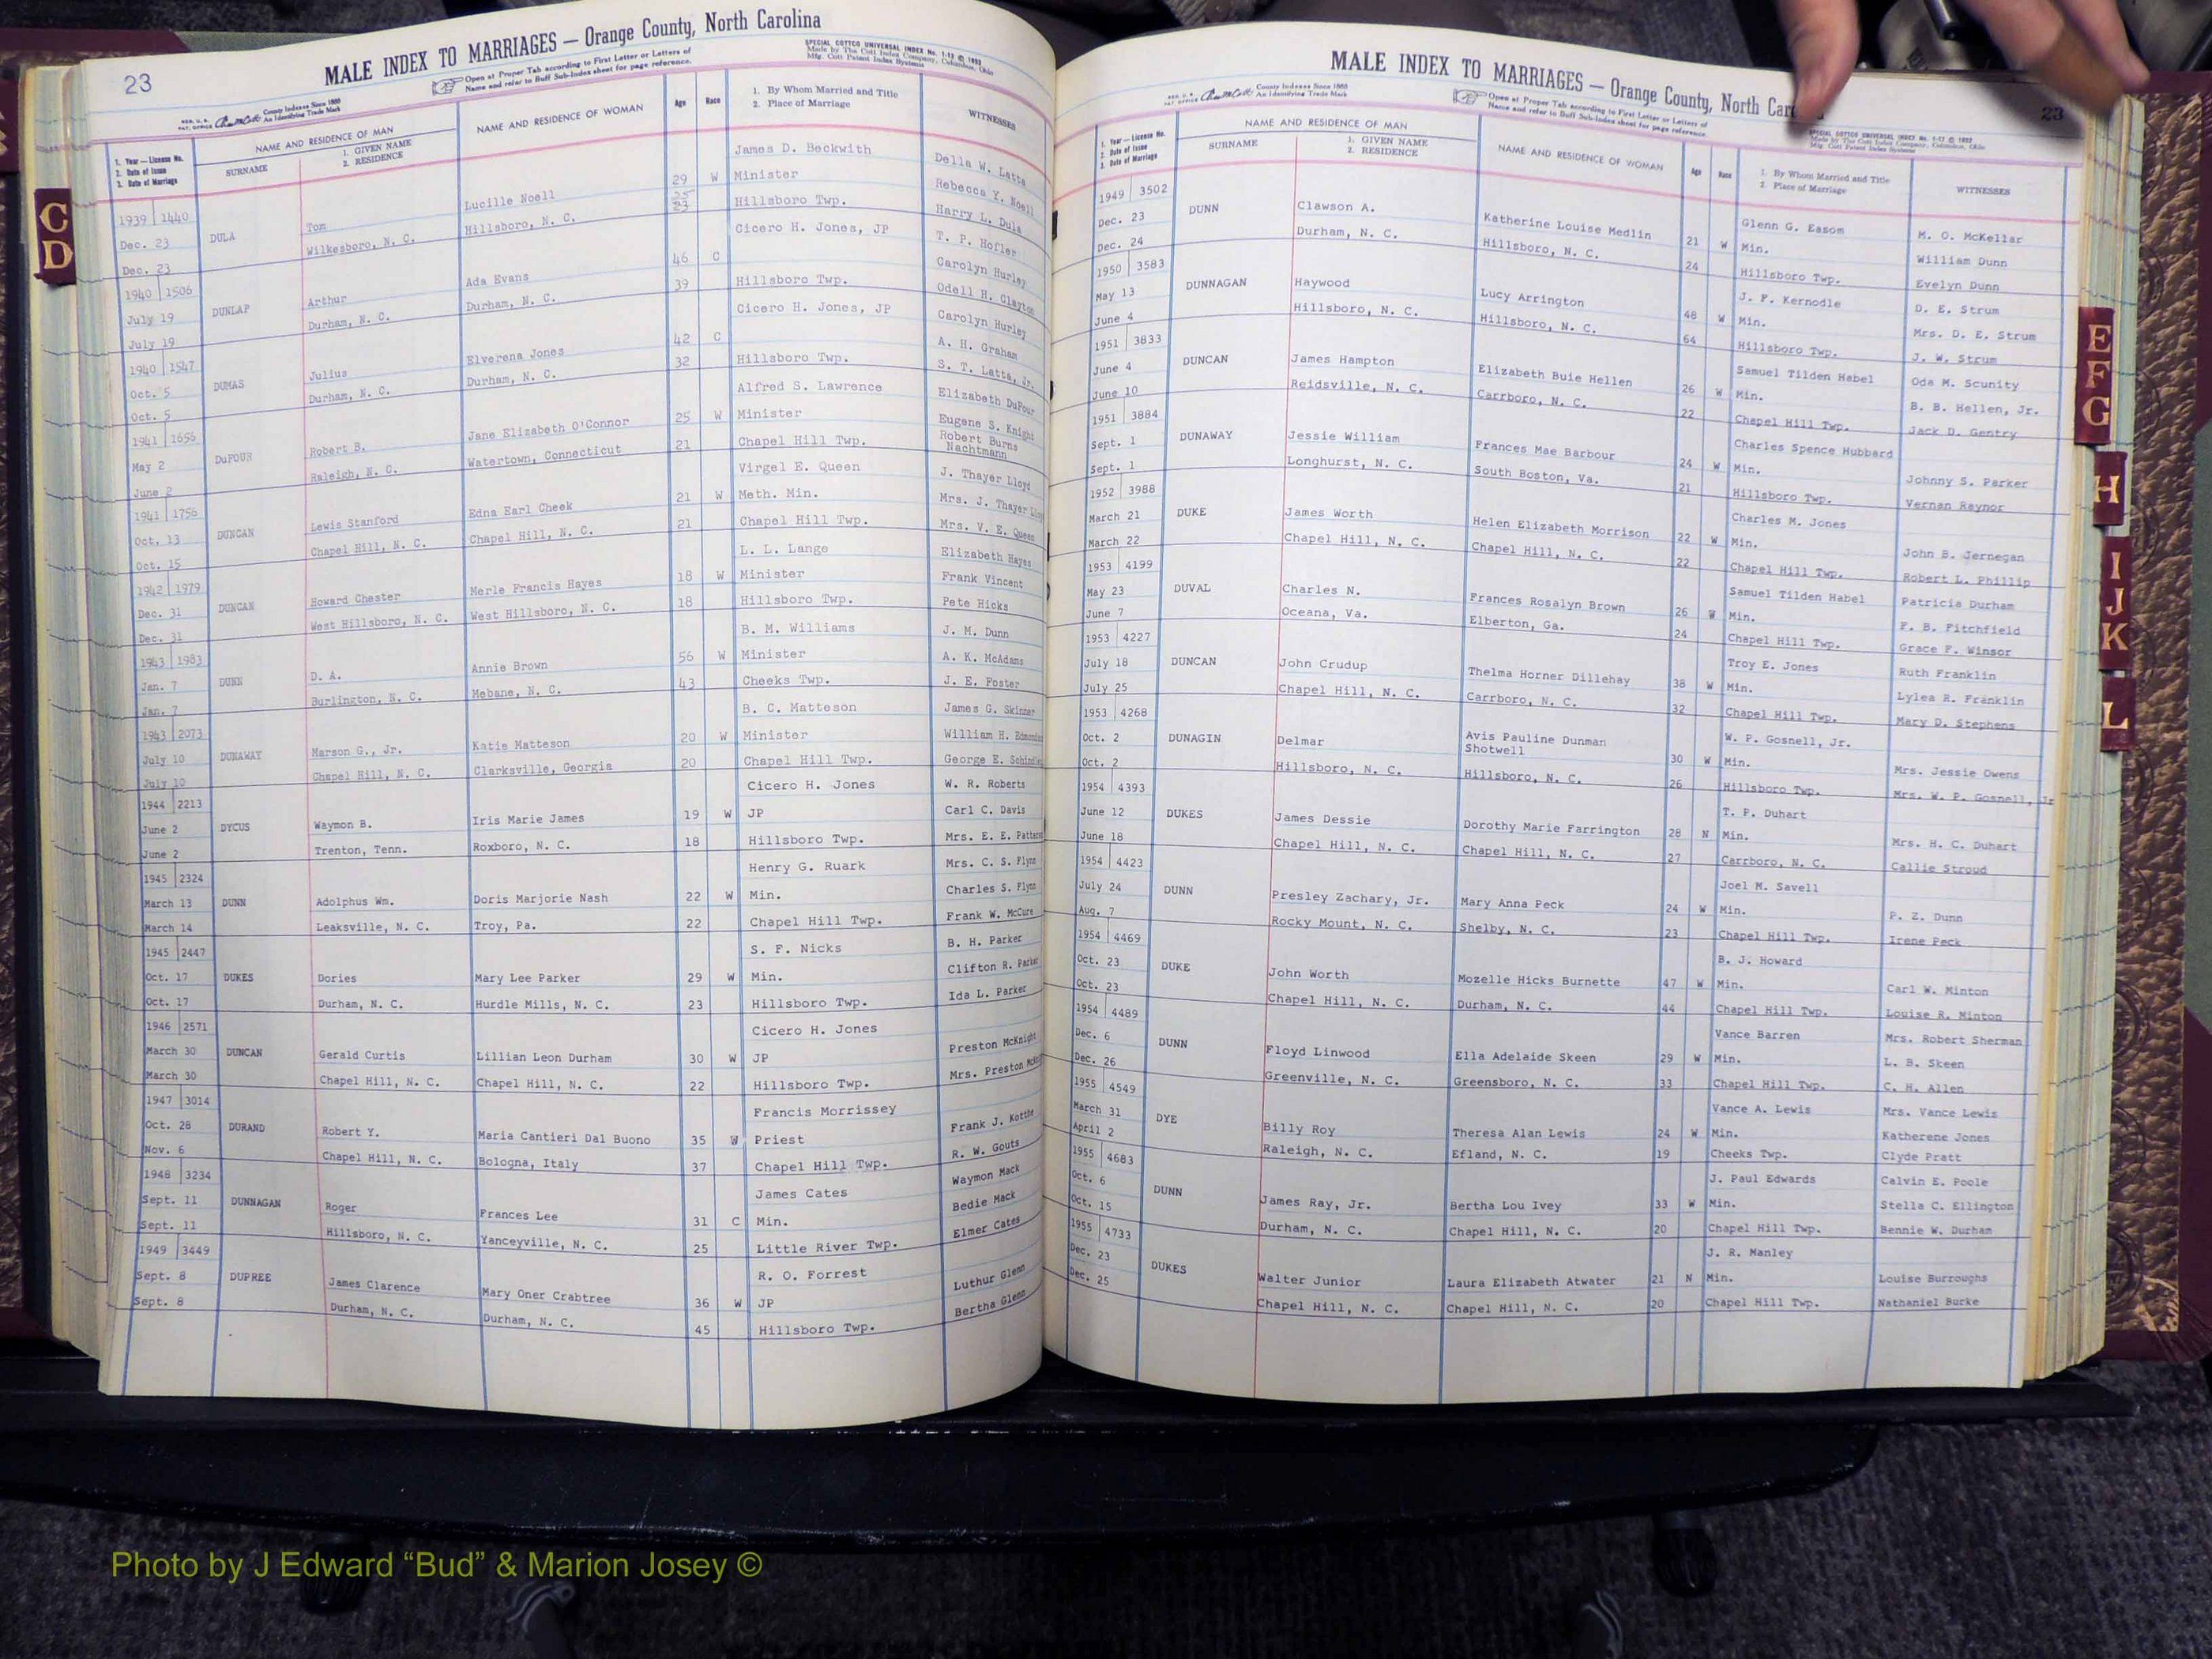 23
MALE INDEX TO MARRIAGES — Orange County, North Carolina
SPECIAL COTTCO UNIVERSAL INDEX No. 1-12 © 1952
Made by The Cott Index Company, Columbus, Ohio
Mfg. Cott Patent Index Systems
County Indexes Since 1888
An Identifying Trade Mark
Open at Proper Tab according to First Letter or Letters of
Name and refer to Buff Sub-Index sheet for page reference.
1. Year — License No.
2. Date of Issue
3. Date of Marriage
NAME AND RESIDENCE OF MAN
SURNAME
1. GIVEN NAME
2. RESIDENCE
NAME AND RESIDENCE OF WOMAN
Age
Race
1. By Whom Married and Title
2. Place of Marriage
WITNESSES
1939 1440 James D. Beckwith Della W. Latta
Dec. 23 DULA Tom Lucille Noell 29 W Minister Rebecca Y. Noell
Dec. 23 Wilkesboro, N. C. Hillsboro, N. C. 23 Hillsboro Twp. Harry L. Dula
1940 1506 Cicero H. Jones, JP T. P. Hofler
July 19 DUNLAP Arthur Ada Evans 46 C Carolyn Hurley
July 19 Durham, N. C. Durham, N. C. 39 Hillsboro Twp. Odell H. Clayton
1940 1547 Cicero H. Jones, JP Carolyn Hurley
Oct. 5 DUMAS Julius Elverena Jones 42 C A. H. Graham
Oct. 5 Durham, N. C. Durham, N. C. 32 Hillsboro Twp. S. T. Latta, Jr.
1941 1656 Alfred S. Lawrence Elizabeth DuFour
May 2 DuFOUR Robert B. Jane Elizabeth O'Connor 25 W Minister Eugene S. Knight
June 2 Raleigh, N. C. Watertown, Connecticut 21 Chapel Hill Twp. Robert Burns Nachtmann
1941 1756 Virgel E. Queen J. Thayer Lloyd
Oct. 13 DUNCAN Lewis Stanford Edna Earl Cheek 21 W Meth. Min. Mrs. J. Thayer
Oct. 15 Chapel Hill, N. C. Chapel Hill, N. C. 21 Chapel Hill Twp. Mrs. V. E. Queen
1942 1979 L. L. Lange Elizabeth Hayes
Dec. 31 DUNCAN Howard Chester Merle Francis Hayes 18 W Minister Frank Vincent
Dec. 31 West Hillsboro, N. C. West Hillsboro, N. C. 18 Hillsboro Twp. Pete Hicks
1943 1983 B. M. Williams J. M. Dunn
Jan. 7 DUNN D. A. Annie Brown 56 W Minister A. K. McAdams
Jan. 7 Burlington, N. C. Mebane, N. C. 43 Cheeks Twp. J. E. Foster
1943 2073 B. C. Matteson James G. Skinner
July 10 DUNAWAY Marson G., Jr. Katie Matteson 20 W Minister William H.
July 10 Chapel Hill, N. C. Clarksville, Georgia 20 Chapel Hill Twp. George E.
1944 2213 Cicero H. Jones W. R. Roberts
June 2 DYCUS Waymon B. Iris Marie James 19 W JP Carl C. Davis
June 2 Trenton, Tenn. Roxboro, N. C. 18 Hillsboro Twp. Mrs. E. E.
1945 2324 Henry G. Ruark Mrs. C. S. Flynn
March 13 DUNN Adolphus Wm. Doris Marjorie Nash 22 W Min. Charles S. Flynn
March 14 Leaksville, N. C. Troy, Pa. 22 Chapel Hill Twp. Frank W. McCure
1945 2447 S. F. Nicks B. H. Parker
Oct. 17 DUKES Dories Mary Lee Parker 29 W Min. Clifton R. Parker
Oct. 17 Durham, N. C. Hurdle Mills, N. C. 23 Hillsboro Twp. Ida L. Parker
1946 2571 Cicero H. Jones
March 30 DUNCAN Gerald Curtis Lillian Leon Durham 30 W JP Preston McKnight
March 30 Chapel Hill, N. C. Chapel Hill, N. C. 22 Hillsboro Twp. Mrs. Preston
1947 3014 Francis Morrissey
Oct. 28 DURAND Robert Y. Maria Cantieri Dal Buono 35 W Priest Frank J.
Nov. 6 Chapel Hill, N. C. Bologna, Italy 37 Chapel Hill Twp. R. W. Gouts
1948 3234 James Cates Waymon Mack
Sept. 11 DUNNAGAN Roger Frances Lee 31 C Min. Bedie Mack
Sept. 11 Hillsboro, N. C. Yanceyville, N. C. 25 Little River Twp. Elmer Cates
1949 3449 R. O. Forrest
Sept. 8 DUPREE James Clarence Mary Oner Crabtree 36 W JP Luthur Glenn
Sept. 8 Durham, N. C. Durham, N. C. 45 Hillsboro Twp. Bertha Glenn
MALE INDEX TO MARRIAGES — Orange County, North Car
23
County Indexes Since 1888
An Identifying Trade Mark
Open at Proper Tab according to First Letter or Letters of
Name and refer to Buff Sub-Index sheet for page reference.
SPECIAL COTTCO UNIVERSAL INDEX No. 1-12 © 1952
Made by The Cott Index Company, Columbus, Ohio
Mfg. Cott Patent Index Systems
1. Year — License No.
2. Date of Issue
3. Date of Marriage
NAME AND RESIDENCE OF MAN
SURNAME
1. GIVEN NAME
2. RESIDENCE
NAME AND RESIDENCE OF WOMAN
Age
Race
1. By Whom Married and Title
2. Place of Marriage
WITNESSES
1949 3502 Glenn G. Eason M. O. McKellar
Dec. 23 DUNN Clawson A. Katherine Louise Medlin 21 W Min. William Dunn
Dec. 24 Durham, N. C. Hillsboro, N. C. 24 Hillsboro Twp. Evelyn Dunn
1950 3583 J. F. Kernodle D. E. Strum
May 13 DUNNAGAN Haywood Lucy Arrington 48 W Min. Mrs. D. E. Strum
June 4 Hillsboro, N. C. Hillsboro, N. C. 64 Hillsboro Twp. J. W. Strum
1951 3833 Samuel Tilden Habel Oda M. Scunity
June 4 DUNCAN James Hampton Elizabeth Buie Hellen 26 W Min. B. B. Hellen, Jr.
June 10 Reidsville, N. C. Carrboro, N. C. 22 Chapel Hill Twp. Jack D. Gentry
1951 3884 Charles Spence Hubbard
Sept. 1 DUNAWAY Jessie William Frances Mae Barbour 24 W Min. Johnny S. Parker
Sept. 1 Longhurst, N. C. South Boston, Va. 21 Hillsboro Twp. Vernan Raynor
1952 3988 Charles M. Jones
March 21 DUKE James Worth Helen Elizabeth Morrison 22 W Min. John B. Jernegan
March 22 Chapel Hill, N. C. Chapel Hill, N. C. 22 Chapel Hill Twp. Robert L. Phillip
1953 4199 Samuel Tilden Habel Patricia Durham
May 23 DUVAL Charles N. Frances Rosalyn Brown 26 W Min. F. B. Fitchfield
June 7 Oceana, Va. Elberton, Ga. 24 Chapel Hill Twp. Grace F. Winsor
1953 4227 Troy E. Jones Ruth Franklin
July 18 DUNCAN John Crudup Thelma Horner Dillehay 38 W Min. Lylea R. Franklin
July 25 Chapel Hill, N. C. Carrboro, N. C. 32 Chapel Hill Twp. Mary D. Stephens
1953 4268 W. P. Gosnell, Jr.
Oct. 2 DUNAGIN Delmar Avis Pauline Dunman Shotwell 30 W Min. Mrs. Jessie Owens
Oct. 2 Hillsboro, N. C. Hillsboro, N. C. 26 Hillsboro Twp. Mrs. W. P. Gosnell, Jr
1954 4393 T. P. Duhart
June 12 DUKES James Dessie Dorothy Marie Farrington 28 N Min. Mrs. H. C. Duhart
June 18 Chapel Hill, N. C. Chapel Hill, N. C. 27 Carrboro, N. C. Callie Stroud
1954 4423 Joel M. Savell
July 24 DUNN Presley Zachary, Jr. Mary Anna Peck 24 W Min. P. Z. Dunn
Aug. 7 Rocky Mount, N. C. Shelby, N. C. 23 Chapel Hill Twp. Irene Peck
1954 4469 B. J. Howard
Oct. 23 DUKE John Worth Mozelle Hicks Burnette 47 W Min. Carl W. Minton
Oct. 23 Chapel Hill, N. C. Durham, N. C. 44 Chapel Hill Twp. Louise R. Minton
1954 4489 Vance Barren Mrs. Robert Sherman
Dec. 6 DUNN Floyd Linwood Ella Adelaide Skeen 29 W Min. L. B. Skeen
Dec. 26 Greenville, N. C. Greensboro, N. C. 33 Chapel Hill Twp. C. H. Allen
1955 4549 Vance A. Lewis Mrs. Vance Lewis
March 31 DYE Billy Roy Theresa Alan Lewis 24 W Min. Katherene Jones
April 2 Raleigh, N. C. Efland, N. C. 19 Cheeks Twp. Clyde Pratt
1955 4683 J. Paul Edwards Calvin E. Poole
Oct. 6 DUNN James Ray, Jr. Bertha Lou Ivey 33 W Min. Stella C. Ellington
Oct. 15 Durham, N. C. Chapel Hill, N. C. 20 Chapel Hill Twp. Bennie W. Durham
1955 4733 J. R. Manley
Dec. 23 DUKES Walter Junior Laura Elizabeth Atwater 21 N Min. Louise Burroughs
Dec. 25 Chapel Hill, N. C. Chapel Hill, N. C. 20 Chapel Hill Twp. Nathaniel Burke
C
D
E
F
G
H
I
J
K
L
Photo by J Edward “Bud” & Marion Josey ©